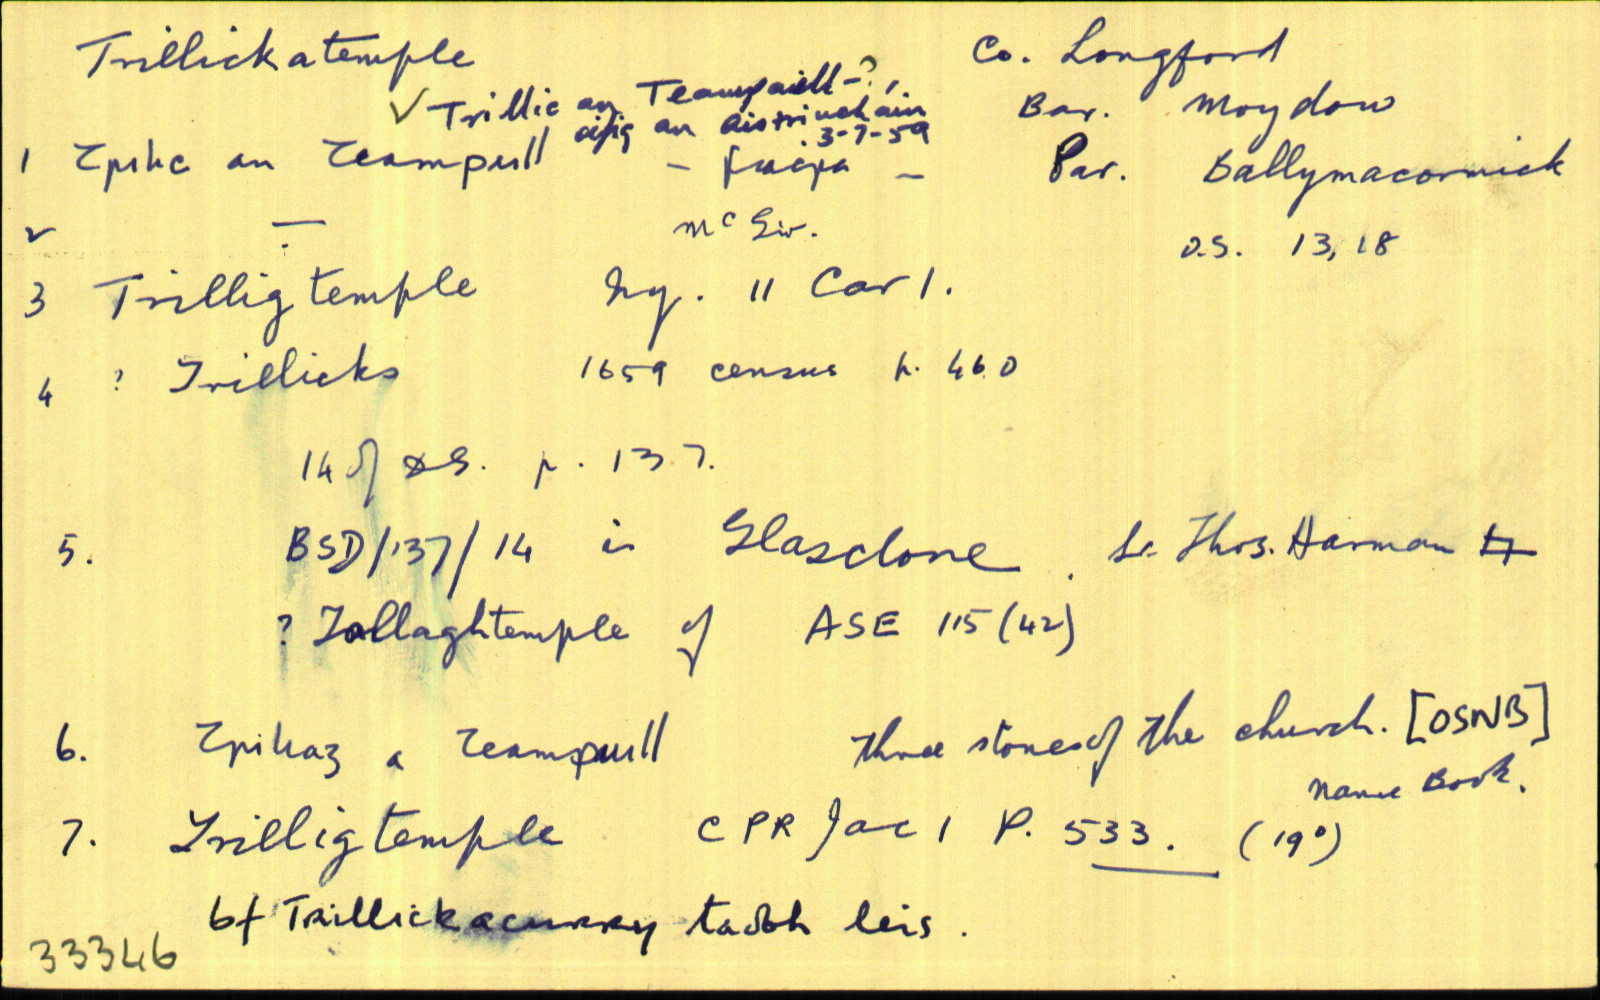 Trillickatemple
Co. Longford
✓ Trillic an Teampaill - ?,
oifig an aistriucháin
3-7-59
Bar. Moydow
1 Trilic an Teampuill
Par. Ballymacormick
2 —
McGiv.
O.S. 13, 18
3 Trilligtemple Inq. 11 Car 1.
4 ? Trillicks 1659 census p. 460
14 of p. 137.
5. BSD/137/14 is Glasclone. Thos. Harman
? Tollaghtemple of ASE 115 (42)
6. a Teampuill three stones of the church. [OSNB]
Name Book.
7. Trilligtemple CPR Jac 1 P. 533. (19°)
bf Trillickacurry taobh leis.
33346